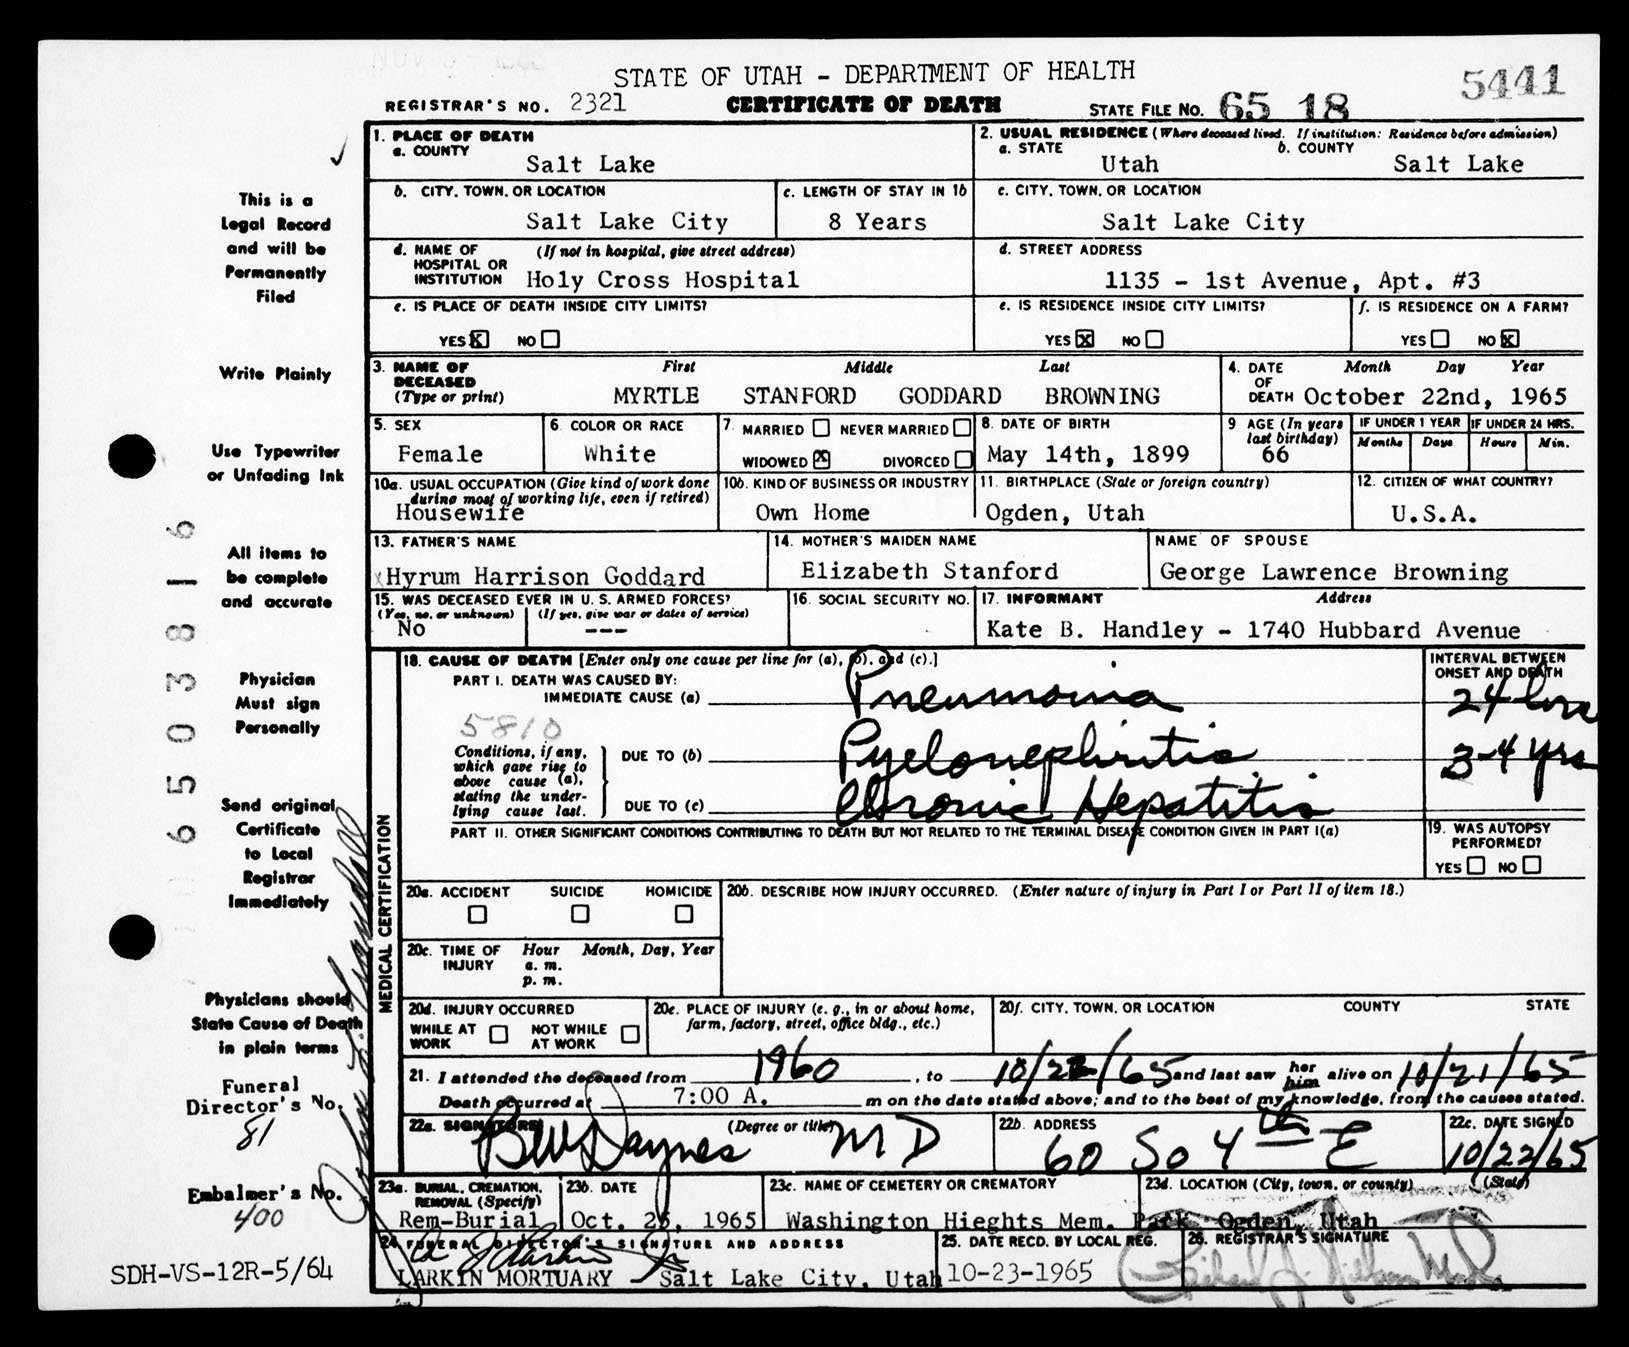 STATE OF UTAH - DEPARTMENT OF HEALTH
5441
REGISTRAR'S NO. 2321 CERTIFICATE OF DEATH STATE FILE NO. 65 18
1. PLACE OF DEATH
a. COUNTY
Salt Lake
2. USUAL RESIDENCE (Where deceased lived. If institution: Residence before admission)
a. STATE b. COUNTY
Utah Salt Lake
b. CITY, TOWN, OR LOCATION
Salt Lake City
c. LENGTH OF STAY IN 1b
8 Years
c. CITY, TOWN, OR LOCATION
Salt Lake City
d. NAME OF (If not in hospital, give street address)
HOSPITAL OR
INSTITUTION Holy Cross Hospital
d. STREET ADDRESS
1135 - 1st Avenue, Apt. #3
e. IS PLACE OF DEATH INSIDE CITY LIMITS?
YES X NO
e. IS RESIDENCE INSIDE CITY LIMITS?
YES X NO
f. IS RESIDENCE ON A FARM?
YES NO X
3. NAME OF First Middle Last
DECEASED
(Type or print) MYRTLE STANFORD GODDARD BROWNING
4. DATE Month Day Year
OF
DEATH October 22nd, 1965
5. SEX
Female
6. COLOR OR RACE
White
7. MARRIED NEVER MARRIED
WIDOWED X DIVORCED
8. DATE OF BIRTH
May 14th, 1899
9 AGE (In years
last birthday)
66
IF UNDER 1 YEAR
Months Days
IF UNDER 24 HRS.
Hours Min.
10a. USUAL OCCUPATION (Give kind of work done
during most of working life, even if retired)
Housewife
10b. KIND OF BUSINESS OR INDUSTRY
Own Home
11. BIRTHPLACE (State or foreign country)
Ogden, Utah
12. CITIZEN OF WHAT COUNTRY?
U.S.A.
13. FATHER'S NAME
Hyrum Harrison Goddard
14. MOTHER'S MAIDEN NAME
Elizabeth Stanford
NAME OF SPOUSE
George Lawrence Browning
15. WAS DECEASED EVER IN U. S. ARMED FORCES?
(Yes, no, or unknown) (If yes, give war or dates of service)
No ---
16. SOCIAL SECURITY NO.
17. INFORMANT Address
Kate B. Handley - 1740 Hubbard Avenue
MEDICAL CERTIFICATION
18. CAUSE OF DEATH [Enter only one cause per line for (a), (b), and (c).]
PART I. DEATH WAS CAUSED BY:
IMMEDIATE CAUSE (a) Pneumonia
5810
Conditions, if any,
which gave rise to
above cause (a),
stating the under-
lying cause last.
DUE TO (b) Pyelonephritis
DUE TO (c) Chronic Hepatitis
INTERVAL BETWEEN
ONSET AND DEATH
24 hrs
3-4 yrs
PART II. OTHER SIGNIFICANT CONDITIONS CONTRIBUTING TO DEATH BUT NOT RELATED TO THE TERMINAL DISEASE CONDITION GIVEN IN PART I(a)
19. WAS AUTOPSY
PERFORMED?
YES NO
20a. ACCIDENT SUICIDE HOMICIDE
20b. DESCRIBE HOW INJURY OCCURRED. (Enter nature of injury in Part I or Part II of item 18.)
20c. TIME OF Hour Month, Day, Year
INJURY a. m.
p. m.
20d. INJURY OCCURRED
WHILE AT NOT WHILE
WORK AT WORK
20e. PLACE OF INJURY (e. g., in or about home,
farm, factory, street, office bldg., etc.)
20f. CITY, TOWN, OR LOCATION COUNTY STATE
21. I attended the deceased from 1960, to 10/22/65 and last saw her him alive on 10/21/65
Death occurred at 7:00 A. m on the date stated above; and to the best of my knowledge, from the causes stated.
22a. SIGNATURE (Degree or title)
Daynes MD
22b. ADDRESS
60 So 4th E
22c. DATE SIGNED
10/22/65
23a. BURIAL, CREMATION,
REMOVAL (Specify)
Rem-Burial
23b. DATE
Oct. 25, 1965
23c. NAME OF CEMETERY OR CREMATORY
Washington Hieghts Mem. Park
23d. LOCATION (City, town, or county) (State)
Ogden, Utah
24. FUNERAL DIRECTOR'S SIGNATURE AND ADDRESS
LARKIN MORTUARY Salt Lake City, Utah
25. DATE RECD. BY LOCAL REG.
10-23-1965
26. REGISTRAR'S SIGNATURE
This is a
Legal Record
and will be
Permanently
Filed
Write Plainly
Use Typewriter
or Unfading Ink
All items to
be complete
and accurate
Physician
Must sign
Personally
Send original
Certificate
to Local
Registrar
Immediately
Physicians should
State Cause of Death
in plain terms
Funeral
Director's No.
81
Embalmer's No.
400
SDH-VS-12R-5/64
65038 16